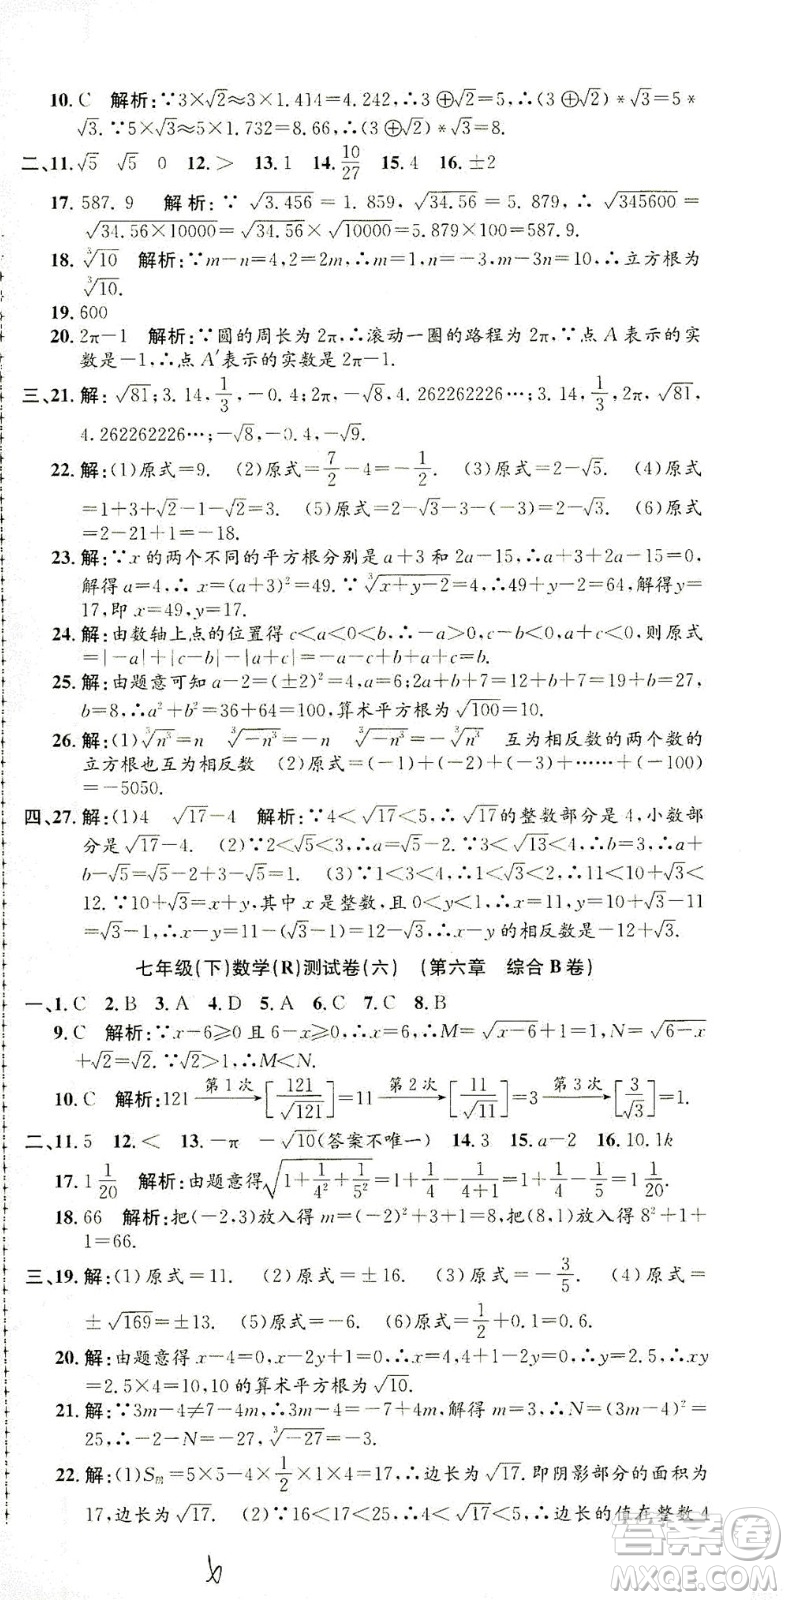 10. C 解析:∵3×√2≈3×1.414=4.242,∴3⊕√2=5,∴(3⊕√2)*√3=5*
√3.∵5×√3≈5×1.732=8.66,∴(3⊕√2)*√3=8.
二、11. √5 √5 0 12. > 13. 1 14. 10/27 15. 4 16. ±2
17. 587.9 解析:∵√3.456=1.859,√34.56=5.879,∴√345600=
√34.56×10000=√34.56×√10000=5.879×100=587.9.
18. ∛10 解析:∵m-n=4,2=2m,∴m=1,n=-3,3m-n... =10,∴立方根为
∛10.
19. 600
20. 2π-1 解析:∵圆的周长为2π,∴滚动一圈的路程为2π,∵点A表示的实
数是-1,∴点A′表示的实数是2π-1.
三、21. 解:√81;3.14,1/3,-0.4;2π,-√8,4.262262226…;3.14,1/3,2π,√81,
4.262262226…;-√8,-0.4,-√9.
22. 解:(1)原式=9. (2)原式=7/2-4=-1/2. (3)原式=2-√5. (4)原式
=1+3+√2-1-√2=3. (5)原式=2-√3-3-(-√3)=-1. (6)原式
=2-21+1=-18.
23. 解:∵x的两个不同的平方根分别是a+3和2a-15,∴a+3+2a-15=0,
解得a=4,∴x=(a+3)²=49.∵∛x+y-2=4,∴49+y-2=64,解得y=
17,即x=49,y=17.
24. 解:由数轴上点的位置得c<a<0<b,∴-a>0,c-b<0,a+c<0,则原式
=|-a|+|c-b|-|a+c|=-a-c+b+a+c=b.
25. 解:由题意可知a-2=(±2)²=4,∴a=6,2a+b+7=12+b+7=27,
b=8,∴a²+b²=6²+8²=100,算术平方根为√100=10.
26. 解:(1)∛n³=n ∛-n³=-n ∛-n³=-∛n³ 互为相反数的两个数的
立方根也互为相反数 (2)原式=-1+(-2)+(-3)+…+(-100)=
-5050.
四、27. 解:(1)4 √17-4 解析:∵4<√17<5,∴√17的整数部分是4,小数部
分是√17-4. (2)∵2<√5<3,∴a=√5-2.∵3<√13<4,∴b=3,∴a+
b-√5=√5-2+3-√5=1. (3)∵1<3<4,∴1<√3<2,∴11<10+√3<
12.∵10+√3=x+y,其中x是整数,且0<y<1,∴x=11,y=10+√3-11
=√3-1,∴x-y=11-(√3-1)=12-√3,∴x-y的相反数是√3-12.
七年级(下)数学(R)测试卷(六) (第六章 综合B卷)
一、1. C 2. B 3. A 4. D 5. A 6. C 7. C 8. B
9. C 解析:∵x-6≥0且6-x≥0,∴x=6,∴M=√x-6+1=1,N=√6-x+
√2=√2.∵√2>1,∴M<N.
10. C 解析:121 第1次 [121/√121]=11 第2次 [11/√11]=3 第3次 [3/√3]=1.
二、11. 5 12. < 13. -π -√10(答案不唯一) 14. 3 15. a-2 16. 10.1k
17. 1 1/20 解析:由题意得√1+1/4²+1/5²=1+1/4-1/4+1=1+1/4-1/5=1 1/20.
18. 66 解析:把(-2,3)放入得m=(-2)²+3+1=8,把(8,1)放入得8²+1+
1=66.
三、19. 解:(1)原式=11. (2)原式=±16. (3)原式=-3/5. (4)原式=
±√169=±13. (5)原式=-6. (6)原式=1/2+0.1=0.6.
20. 解:由题意得x-4=0,x-2y+1=0,∴x=4,4-2y+1=0,∴y=2.5,∴xy
=2.5×4=10,10的算术平方根为√10.
21. 解:∵3m-4≠7-4m,∴3m-4=-(7-4m),解得m=3,∴N=(3m-4)²=
25,∴-2-N=-2-25=-27,∛-27=-3.
22. 解:(1)S阴=5×5-4×1/2×1×4=17,∴边长为√17.即阴影部分的面积为
17,边长为√17. (2)∵16<17<25,∴4<√17<5,∴边长的值在整数4
6
答案圈
MXQE.COM